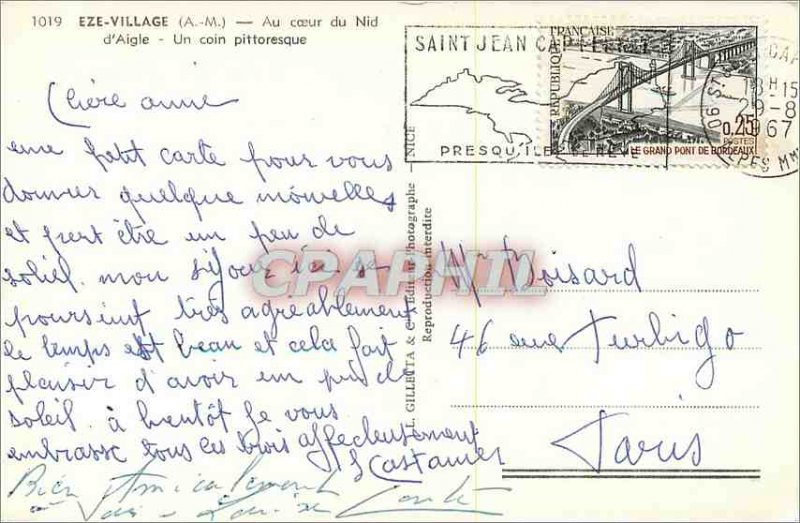 1019 EZE-VILLAGE (A.-M.) — Au cœur du Nid
d'Aigle - Un coin pittoresque
Chère amie
une petit carte pour vous
donner quelque nouvelles
et peut être un peu de
soliel. mon séjour ici se
poursuit très agréablement
le temps est beau et cela fait
plaisir d'avoir un peu de
soleil. à bientôt je vous
embrasse tous les trois affectueusement
Bien Amicalement
SAINT JEAN CAP FERRAT
PRESQU'ILE DE REVE
REPUBLIQUE FRANÇAISE
0,25
POSTES
LE GRAND PONT DE BORDEAUX
18H15
29-8
1967
L. GILLETTA & Cie Editeur Photographe — NICE
Reproduction interdite
CPAPHIL
Mr Boisard
46 rue Turbigo
Paris